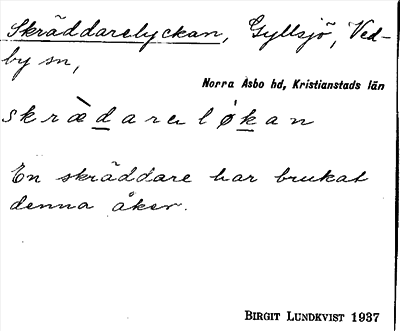 Skräddarelyckan, Gyllsjö, Ved-
by sn,
Norra Åsbo hd, Kristianstads län
skræ̀darəløkan
En skräddare har brukat
denna åker.
BIRGIT LUNDKVIST 1937